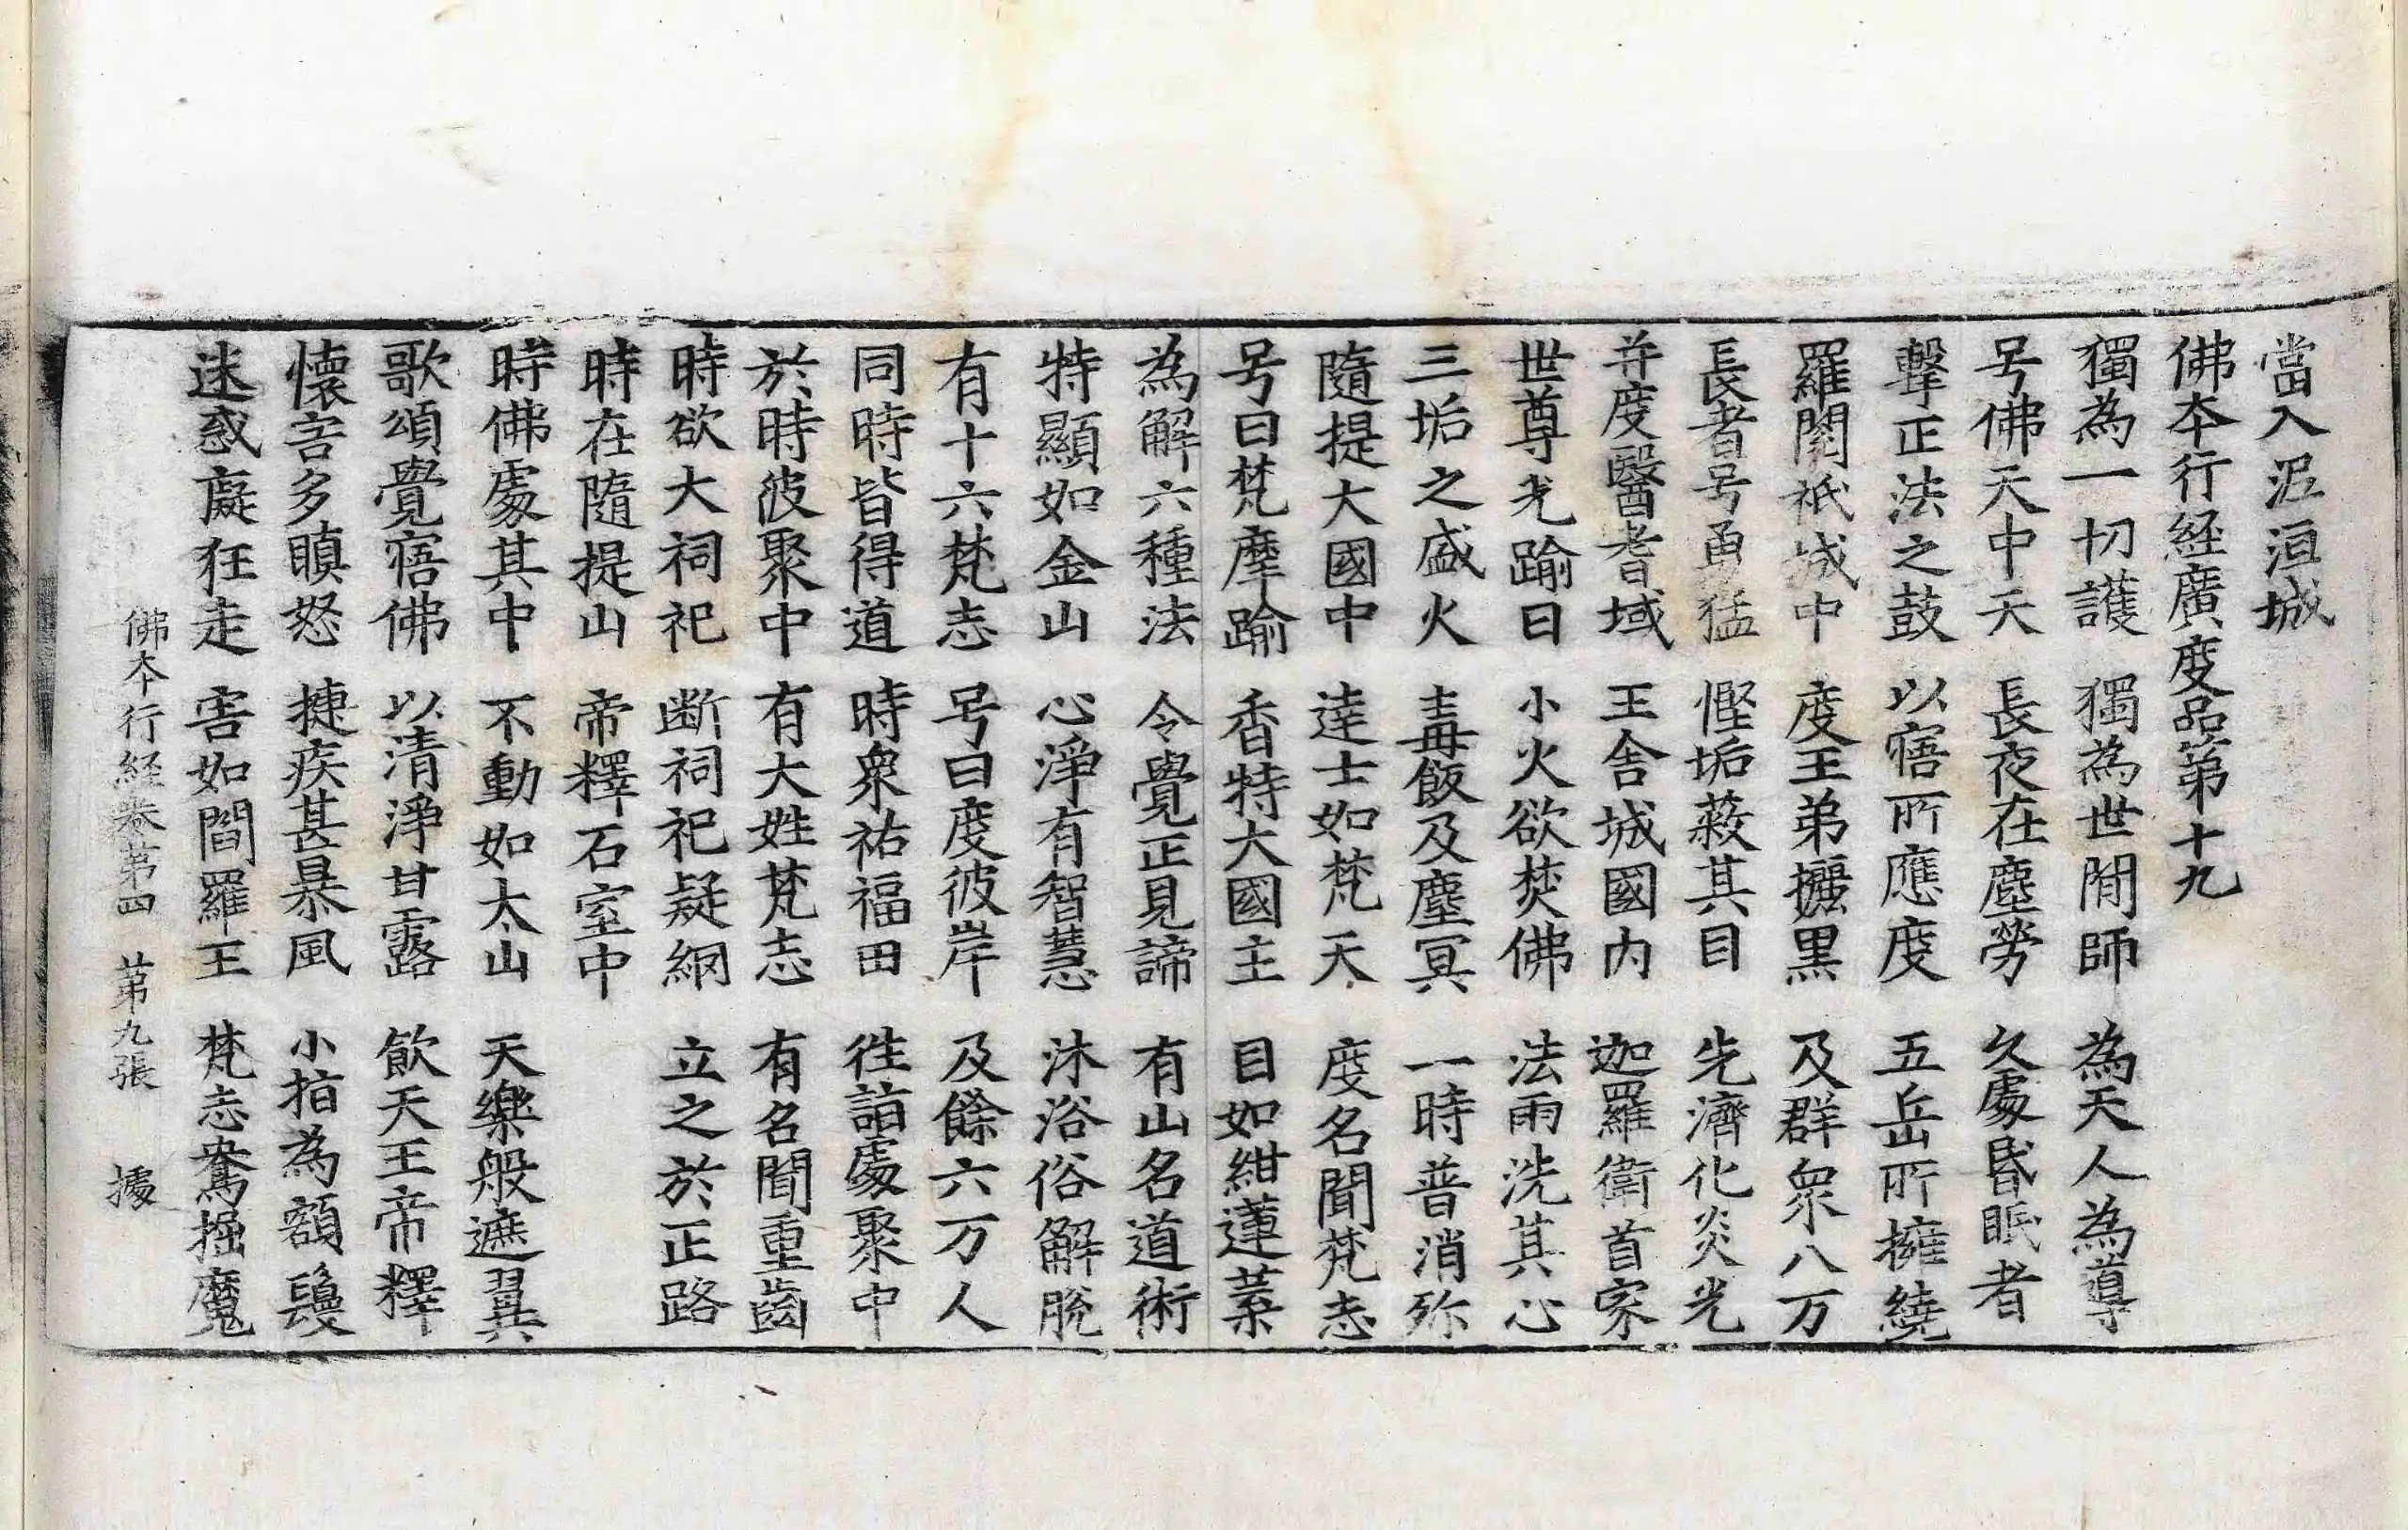 當入泥洹城
佛本行経廣度品第十九
獨為一切護 獨為世閒師 為天人為導
号佛天中天 長夜在塵勞 久處昏眠者
擊正法之鼓 以寤所應度 五岳所擁繞
羅閱祇城中 度王弟攦黑 及群衆八万
長者号勇猛 慳垢蔽其目 先濟化炎光
并度醫耆域 王舍城國內 迦羅衛首家
世尊光踰日 小火欲焚佛 法雨洗其心
三垢之盛火 毒飯及塵冥 一時普消殄
隨提大國中 逹士如梵天 度名聞梵志
号曰梵摩踰 香特大國主 目如紺蓮葉
為解六種法 令覺正見諦 有山名道術
特顯如金山 心淨有智慧 沐浴俗解脫
有十六梵志 号曰度彼岸 及餘六万人
同時皆得道 時衆祐福田 徃詣處聚中
於時彼聚中 有大姓梵志 有名聞重齒
時欲大祠祀 断祠祀疑網 立之於正路
時在隨提山 帝釋石室中
時佛處其中 不動如太山 天樂般遮翼
歌頌覺寤佛 以清淨甘露 飲天王帝釋
懷害多瞋怒 捷疾甚暴風 小指為額鬘
迷惑癡狂走 害如閻羅王 梵志鴦掘魔
佛本行経卷第四 第九張 據